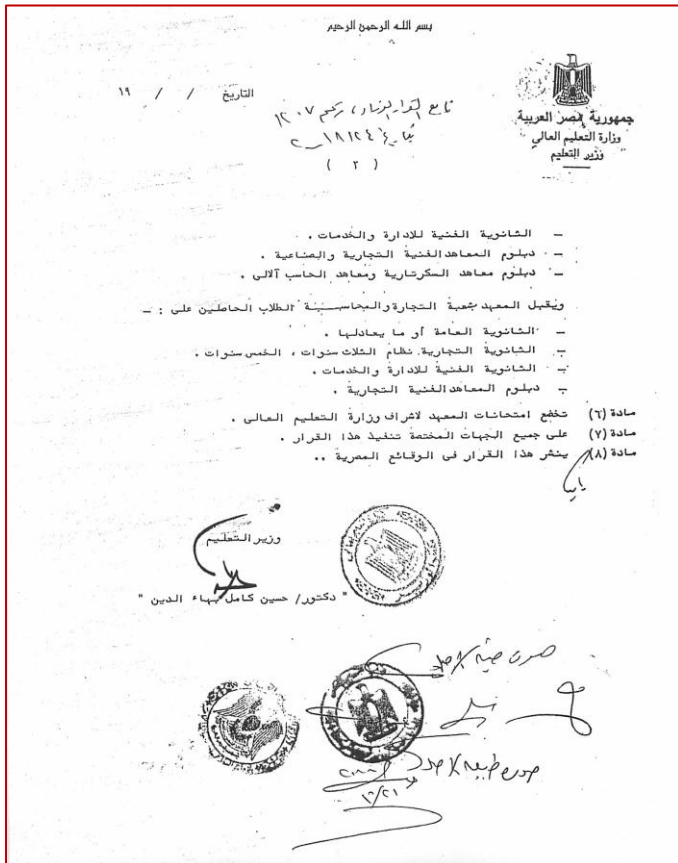 بسم الله الرحمن الرحيم
جمهورية مصر العربية
وزارة التعليم العالي
وزير التعليم
التاريخ / / ١٩
تابع القرار الوزارى رقم ١٢٠٧
( ٢ )
ـ الثانوية الفنية للادارة والخدمات .
ـ دبلوم المعاهد الفنية التجارية والصناعية .
ـ دبلوم معاهد السكرتارية ومعاهد الحاسب آلالى .
ويقبل المعهد بشعبة التجارة والمحاسبــة الطلاب الحاصلين على : ـ
ـ الثانوية العامة أو ما يعادلها .
ـ الثانوية التجارية نظام الثلاث سنوات ، الخمس سنوات .
ـ الثانوية الفنية للادارة والخدمات .
ـ دبلوم المعاهد الفنية التجارية .
مادة (٦) تخضع امتحانات المعهد لاشراف وزارة التعليم العالى .
مادة (٧) على جميع الجهات المختصة تنفيذ هذا القرار .
مادة (٨) ينشر هذا القرار فى الوقائع المصرية ..
وزير التعليم
" دكتور/ حسين كامل بهاء الدين "